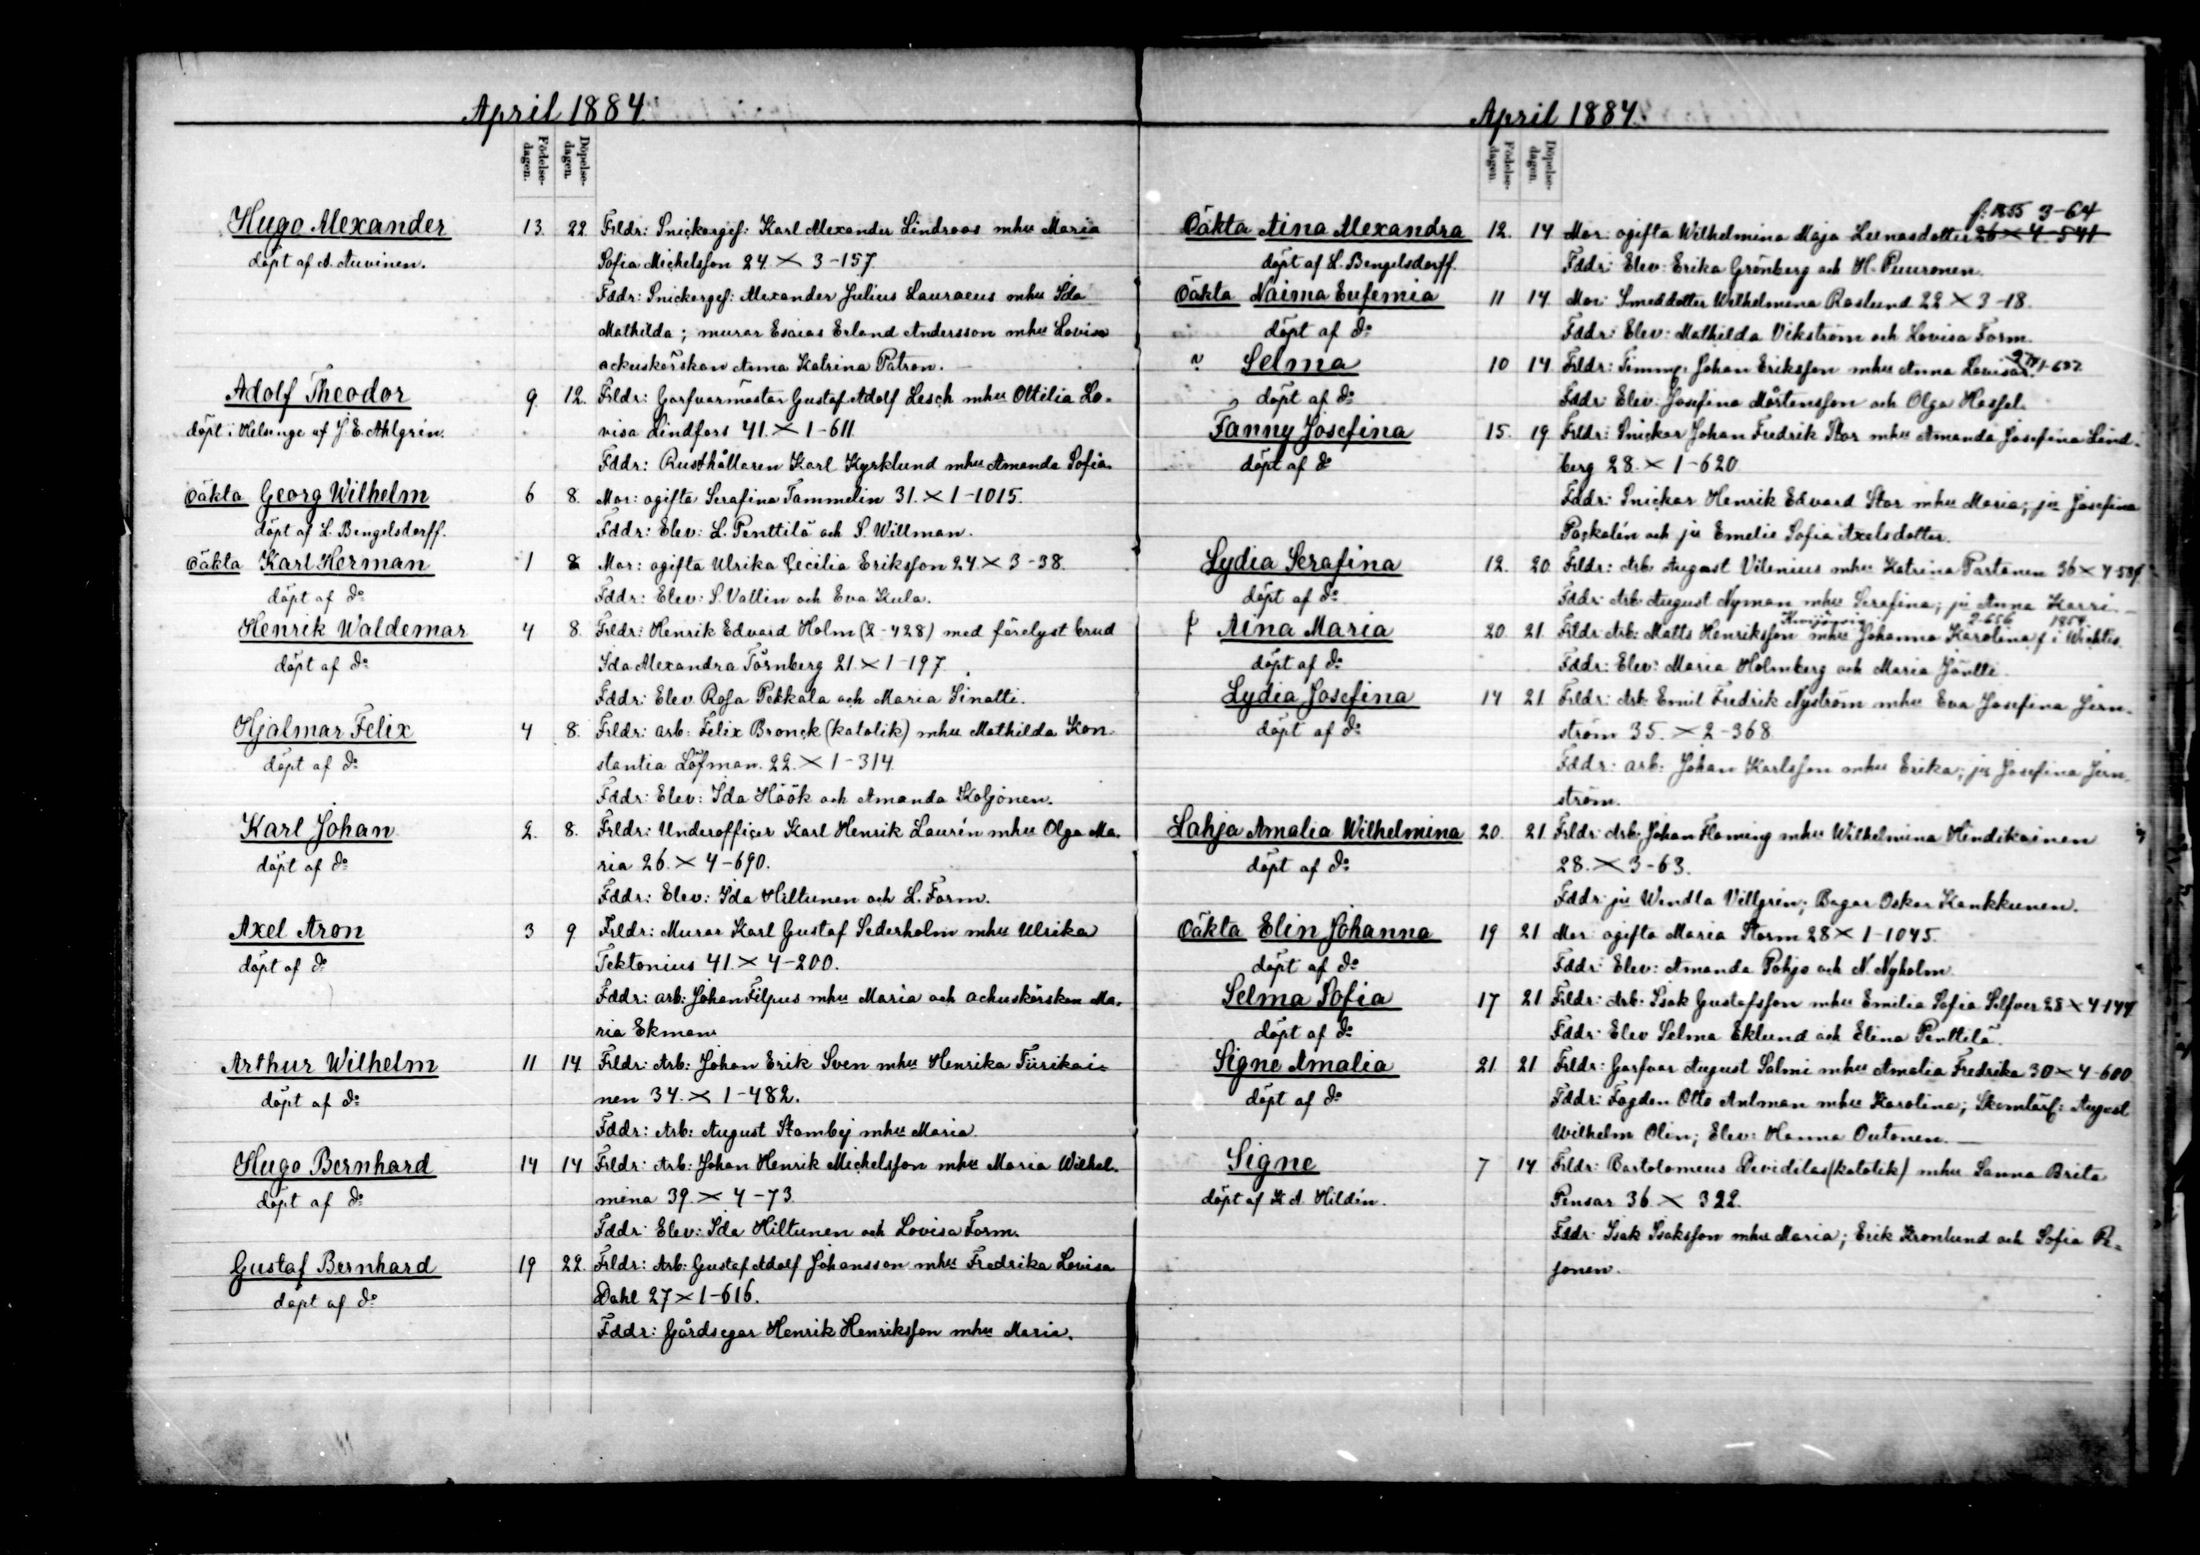 April 1884.
Födelse-dagen. Döpelse-dagen.
Hugo Alexander 13. 22. Frldr: Snickargef: Karl Alexander Lindroos mhu Maria
döpt af A. Auvinen. Sofia Michelsson 24. × 3-157.
Fddr: Snickargef: Alexander Julius Lauraeus mhu Ida
Mathilda; murar Esaias Erland Andersson mhu Lovisa
ackuskörskan Anna Katrina Patron.
Adolf Theodor 9. 12. Frldr: Garfvarmästar Gustaf Adolf Lesch mhu Ottilia Lo-
döpt i Helsinge af J. E. Ahlgrén. visa Lindfors 41. × 1-611.
Fddr: Rusthållaren Karl Kyrklund mhu Amanda Sofia.
Oäkta Georg Wilhelm 6 8. Mor: ogifta Serafina Tammelin 31. × 1-1015.
döpt af L. Bengelsdorff. Fddr: Elev: L. Penttilä och S. Willman.
Oäkta Karl Herman 1 8 Mor: ogifta Ulrika Cecilia Eriksson 24 × 3-38.
döpt af do Fddr: Elev: S. Vallin och Eva Kula.
Henrik Waldemar 4 8. Frldr: Henrik Edvard Holm (2-428) med förelyst brud
döpt af do Ida Alexandra Törnberg 21. × 1-197.
Fddr: Elev Rosa Pekkala och Maria Sinatti.
Hjalmar Felix 4 8. Frldr: arb: Felix Bronck (katolik) mhu Mathilda Kon-
döpt af do stantia Löfman. 22. × 1-314.
Fddr: Elev: Ida Höök och Amanda Koljonen.
Karl Johan 2. 8. Frldr: Underofficer Karl Henrik Laurén mhu Olga Ma-
döpt af do ria 26. × 4-690.
Fddr: Elev: Ida Hiltunen och L. Form.
Axel Aron 3 9 Frldr: Murar Karl Gustaf Sederholm mhu Ulrika
döpt af do Tektonius 41. × 4-200.
Fddr: arb: Johan Filpus mhu Maria och ackuskörskan Ma-
ria Ekman.
Arthur Wilhelm 11 14 Frldr: Arb: Johan Erik Sven mhu Henrika Tiirikai-
döpt af do nen 34. × 1-482.
Fddr: Arb: August Stambej mhu Maria.
Hugo Bernhard 14 14 Frldr: Arb: Johan Henrik Michelsson mhu Maria Wilhel-
döpt af do mina 39. × 4-73.
Fddr: Elev: Ida Hiltunen och Lovisa Form.
Gustaf Bernhard 19 22. Frldr: Arb: Gustaf Adolf Johansson mhu Fredrika Lovisa
döpt af do Dahl 27 × 1-616.
Fddr: Gårdsegar Henrik Henriksson mhu Maria.
April 1884.
Födelse-dagen. Döpelse-dagen.
f: 1855 3-64
Oäkta Aina Alexandra 12. 14 Mor: ogifta Wilhelmina Maja Leenasdotter 26 × 4-541
döpt af L. Bengelsdorff. Fddr: Elev: Erika Grönberg och H. Puuronen.
Oäkta Naima Eufemia 11 14. Mor: Smeddotter Wilhelmina Roslund 22 × 3-18.
döpt af do Fddr: Elev: Mathilda Vikström och Lovisa Form.
Selma 10 14 Frldr: Timmr: Johan Eriksson mhu Anna Lovisa 27/1-652
döpt af do Fddr: Elev: Josefina Mårtensson och Olga Hassel.
Fanny Josefina 15. 19 Frldr: Snickar Johan Fredrik Stor mhu Amanda Josefina Lind-
döpt af do berg 28. × 1-620
Fddr: Snickar Henrik Edvard Stor mhu Maria; ju Josefina
Paskalén och ju Emelie Sofia Axelsdotter.
Lydia Serafina 12. 20. Frldr: Arb August Vilenius mhu Katrina Partanen 36 × 4-584
döpt af do Fddr: Arb August Nyman mhu Serafina; ju Anna Karri
2-656 1854
Aina Maria 20. 21 Frldr: Arb: Matts Henriksson mhu Johanna Karolina f i Wichtis.
döpt af do Fddr: Elev: Maria Holmberg och Maria Jäntti.
Lydia Josefina 14 21 Frldr: Arb: Emil Fredrik Nyström mhu Eva Josefina Jern-
döpt af do ström 35. × 2-368
Fddr: arb: Johan Karlsson mhu Erika; ju Josefina Jern-
ström.
Lahja Amalia Wilhelmina 20. 21 Frldr: Arb: Johan Flaming mhu Wilhelmina Hindikainen
döpt af do 28. × 3-63.
Fddr: ju Wendla Villgrén; Bagar Oskar Kankkunen.
Oäkta Elin Johanna 19 21 Mor: ogifta Maria Storm 28 × 1-1045.
döpt af do Fddr: Elev: Amanda Pohjo och N. Nyholm
Selma Sofia 17 21 Frldr: Arb: Isak Gustafsson mhu Emilia Sofia Silfver 28 × 4-144
döpt af do Fddr: Elev Selma Eklund och Elina Penttilä.
Signe Amalia 21. 21 Frldr: Garfvar August Salmi mhu Amalia Fredrika 30 × 4-600
döpt af do Fddr: Fogden Otto Anlman mhu Karolina; Skomlärf: August
Wilhelm Olin; Elev: Hanna Outonen.
Signe 7 14. Frldr: Bartolomeus Dividilas (katolik) mhu Sanna Brita
döpt af K A. Hildén. Pensar 36 × 322.
Fddr: Isak Isaksson mhu Maria; Erik Kronlund och Sofia
jonen.